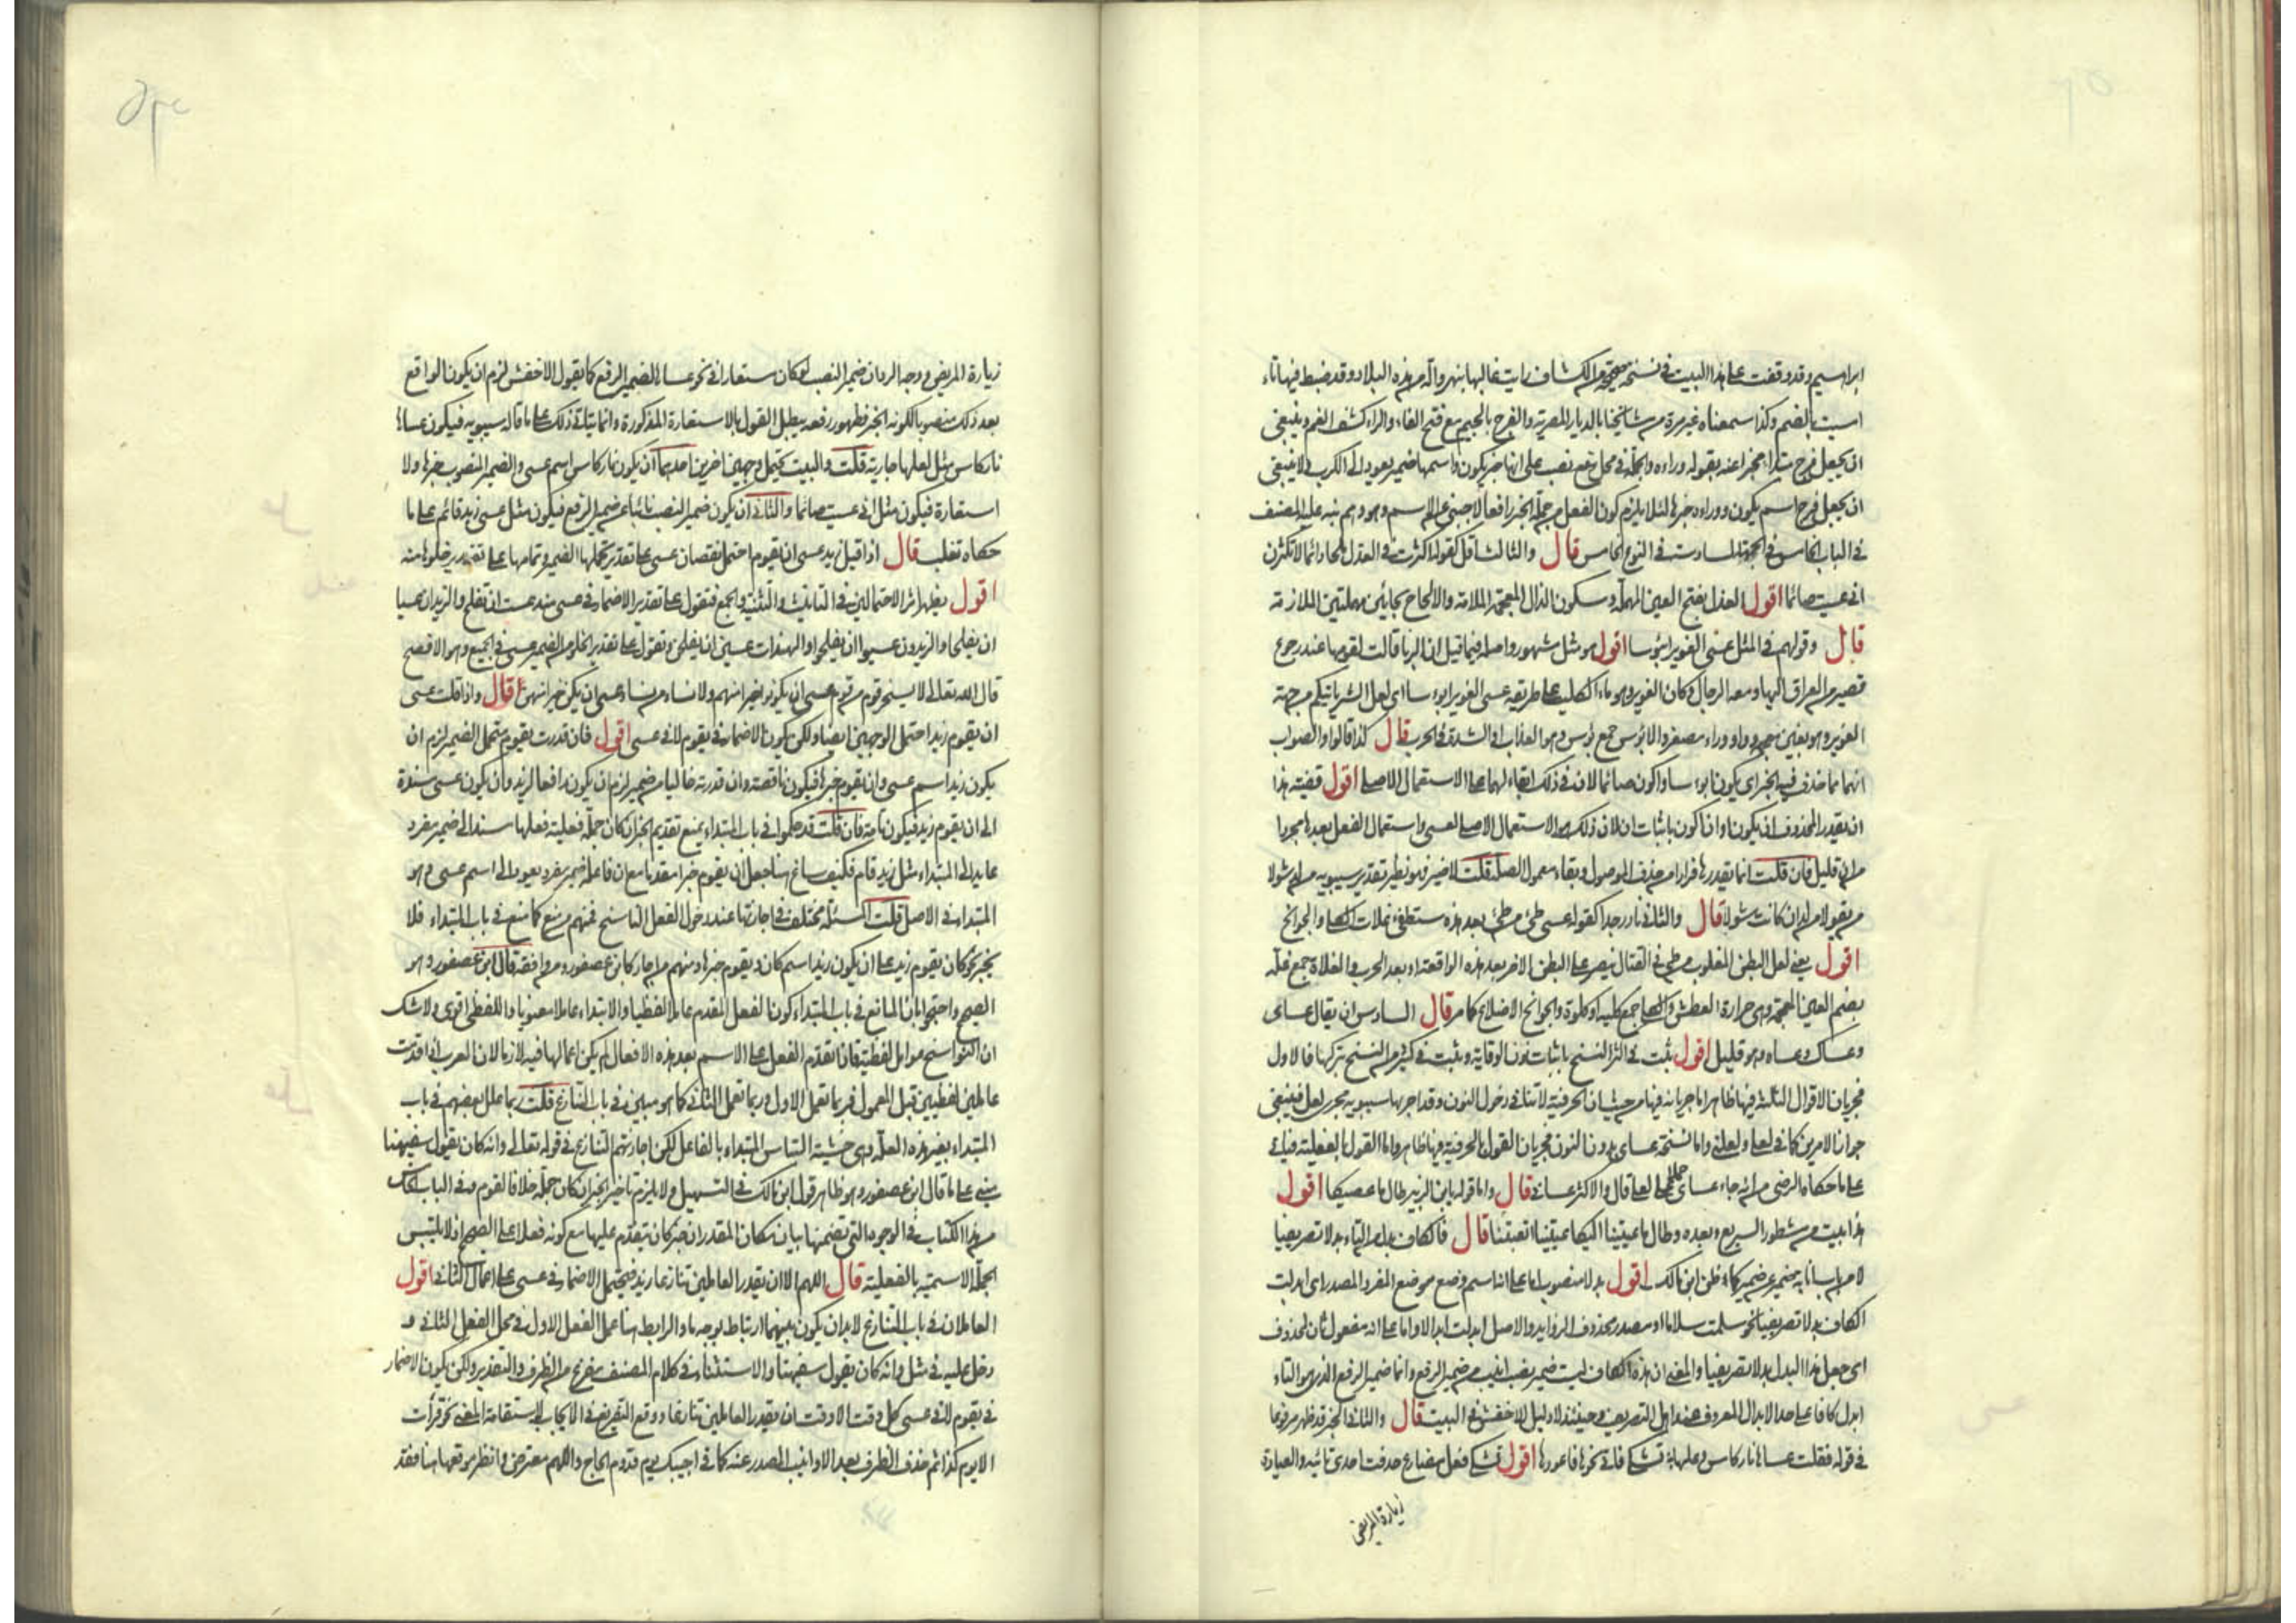 ابراهيم وقد وقفت على هذا البيت في نسخة صحيحة من الكشاف رايت غالبها بنهروالة من هذه البلاد وقد ضبط فيها تاء
امسيت بالضم وكذا سمعناه غير مرة من مشايخنا بالديار المصرية والفرج بالجيم مع فتح الفاء والراء كشف الغم وينبغي
ان يجعل فرج مبتدأ مخبرا عنه بقوله وراءه والجملة في محل نصب على انها خبر يكون واسمها ضمير يعود الى الكرب ولا ينبغي
ان يجعل فرج اسم يكون ووراءه خبرها لئلا يلزم كون الفعل من جملة الخبر رافعا لاجنبي عن الاسم وهو وهم نبه عليه المصنف
في الباب الخامس في الجهة السادسة في النوع الخامس قال والثالث اقل كقوله اكثرت في العذل ملحا دائما لا تكثرن
اني عسيت صائما اقول العذل بفتح العين المهملة وسكون الذال المعجمة الملامة والالحاح بحائين مهملتين الملازمة
قال وقولهم في المثل عسى الغوير ابؤسا اقول هو مثل مشهور واصله فيما قيل ان الزبا قالت لقومها عند رجوع
قصير من العراق اليها ومعه الرجال وكان الغوير وهو ماء لكلب على طريقه عسى الغوير ابوءسا اى لعل الشر ياتيكم من جهة
الغوير وهو بغين معجمة وواو وراء مصغر والابؤس جمع بؤس وهو العذاب او الشدة في الحرب قال كذا قالوا والصواب
انهما مما حذف فيه الخبر اى يكون ابوءسا واكون صائما لان في ذلك ابقاء لهما على الاستعمال الاصلي اقول قضية هذا
ان يقدر المحذوف ان يكون او ان اكون باثبات ان لان ذلك هو الاستعمال الاصلي لعسى واستعمال الفعل بعدها مجردا
من ان قليل فان قلت انما يقدرها فرارا من حذف الموصول وبقاء معمول الصلة قلت لا ضير فهو نظير تقدير سيبويه من لد شولا
من يقول من لد ان كانت شولا قال والثاني نادر جدا كقوله عسى طيئ من طيئ بعد هذه ستطفئ غلات الكلى والجوانح
اقول يعني لعل البطن المغلوب من طيئ في القتال ينصر على البطن الاخر بعد هذه الواقعة او بعد الحرب والغلات جمع غلة
بضم الغين المعجمة وهي حرارة العطش والكلى جمع كلية او كلوة والجوانح الاضلاع كما مر قال السادس ان يقال عساى
وعساك وعساه وهو قليل اقول ثبت في اكثر النسخ باثبات نون الوقاية وثبت في كثير من النسخ بتركها فالاول
فجريان الاقوال الثلثة فيها ظاهر اما جريانه فيها من حيث ان الحرفية لا تنافي دخول النون وقد اجراها سيبويه مجرى لعل فينبغي
جواز الامرين كما في لعلي ولعلني واما نسخة عساى بدون النون فجريان القول بالحرفية فيها ظاهر واما القول بالفعلية فبناء
على ما حكاه الرضى من انه جاء عساى حملا على لعلي قال والاكثر عساني قال واما قوله يابن الزبير طال ما عصيكا اقول
هذا بيت من مشطور السريع وبعده وطال ما عنيتنا اليكا عنيتنا اتعبتنا قال فالكاف بدل من التاء بدلا تصريفيا
لا من باب انابة ضمير عن ضمير كما ظن ابن مالك اقول بدلا منصوب اما على انه اسم وضع موضع المفرد المصدر اى ابدلت
الكاف بدلا تصريفيا نحو سلمت سلاما او مصدر محذوف الزوايد والاصل ابدلت ابدالا واما على انه مفعول ثان لمحذوف
اى جعل هذا البدل بدلا تصريفيا والمعنى ان هذه الكاف ليست ضمير نصب انيب من ضمير الرفع وانما ضمير الرفع الذى هو التاء
ابدل كافا على حد الابدال المعروف عند اهل التصريف وحينئذ لا دليل للاخفش في البيت قال والثاني ان الخبر قد ظهر مرفوعا
في قوله فقلت عساها نار كاس وعلها تشكى فاتي نحوها فاعودها اقول تشكى فعل مضارع حذفت احدى تائيه والعيادة
زيارة المريض
زيارة المريض ووجه الرد ان ضمير النصب لو كان مستعارا في نحو عساها لضمير الرفع كما يقول الاخفش لزم ان يكون الواقع
بعد ذلك منصوبا لكونه الخبر فظهور رفعه يبطل القول بالاستعارة المذكورة وانما يتاتى ذلك على ما قاله سيبويه فيكون عساها
نار كاس مثل لعلها جارية قلت والبيت يحتمل وجهين اخرين احدهما ان يكون نار كاس اسم عسى والضمير المنصوب خبرها ولا
استعارة فيكون مثل اني عسيت صائما والثاني ان يكون ضمير النصب نائبا عن ضمير الرفع فيكون مثل عسى زيد قائم على ما
حكاه ثعلب قال اذا قيل زيد عسى ان يقوم احتمل نقصان عسى على تقدير تحملها الضمير وتمامها على تقدير خلوها منه
اقول يظهر اثر الاحتمالين في التانيث والتثنية والجمع فتقول على تقدير الاضمار في عسى هند عست ان تفلح والزيدان عسيا
ان يفلحا والزيدون عسوا ان يفلحوا والهندات عسين ان يفلحن وتقول على تقدير الخلو من الضمير عسى في الجميع وهو الافصح
قال الله تعالى لا يسخر قوم من قوم عسى ان يكونوا خيرا منهم ولا نساء من نساء عسى ان يكن خيرا منهن قال واذا قلت عسى
ان يقوم زيد احتمل الوجهين ايضا ولكن يكون الاضمار في يقوم لا في عسى اقول فان قدرت يقوم متحمل الضمير لزم ان
يكون زيد اسم عسى وان يقوم خبرها فيكون ناقصة وان قدرته خاليا من ضمير لزم ان يكون رافعا لزيد وان يكون عسى مسندة
الى ان يقوم زيد فيكون تامة فان قلت قد حكموا في باب المبتداء بمنع تقديم الخبر ان كان جملة فعلية فعلها مسند الى ضمير مفرد
عايد الى المبتداء مثل زيد قام فكيف ساغ هنا جعل ان يقوم خبرا مقدما مع ان فاعله ضمير مفرد يعود الى اسم عسى وهو
المبتداء في الاصل قلت المسئلة مختلف في اجازتها عند دخول الفعل الناسخ فمنهم من منع كما منع في باب المبتداء فلا
يجيز نحو كان يقوم زيد على ان يكون زيد اسم كان ويقوم خبرها ومنهم من اجاز كابن عصفور ومن وافقه قال ابن عصفور وهو
الصحيح واحتجوا بان المانع في باب المبتداء كون الفعل المقدم عاملا لفظيا والابتداء عاملا معنويا واللفظي اقوى ولا شك
ان النواسخ عوامل لفظية فاذا تقدم الفعل على الاسم بعد هذه الافعال لم يكن اعمالها فيه لازما لان العرب اذا قدمت
عاملين لفظيين قبل المعمول فربما تعمل الاول وربما تعمل الثاني كما هو مبين في باب التنازع قلت ربما علل بعضهم في باب
المبتداء بغير هذه العلة وهي خشية التباس المبتداء بالفاعل لكن اجازتهم التنازع في قوله تعالى وانه كان يقول سفيهنا
يبنى على ما قال ابن عصفور وهو ظاهر قول ابن مالك في التسهيل ولا يلزم تاخير الخبر ان كان جملة خلافا لقوم وفي الباب الخامس
من هذا الكتاب في الوجوه التي تضمنها بيان مكان المقدر ان خبر كان يتقدم عليها مع كونه فعلا على الصحيح اذ لا يلتبس
الجملة الاسمية بالفعلية قال اللهم الا ان يقدر العاملين تنازعا زيد فيحتمل الاضمار في عسى على اعمال الثاني اقول
العاملان في باب التنازع لا بد ان يكون بينهما ارتباط بوجه ما والرابط هنا عمل الفعل الاول في محل الفعل الثاني وقد
دخل عليه في مثل وانه كان يقول سفيهنا والاستثناء في كلام المصنف مفرغ من الظرف والتقدير ولكن يكون الاضمار
في يقوم لا في عسى كل وقت الا وقت ان يقدر العاملين تنازعا ووقع التفريغ في الايجاب لاستقامة المعنى نحو قرأت
الا يوم كذا ثم حذف الظرف بعد الا وانيب المصدر عنه كما في اجيبك يوم قدوم الحاج واللهم معترض وانظر موقعها هنا فقد